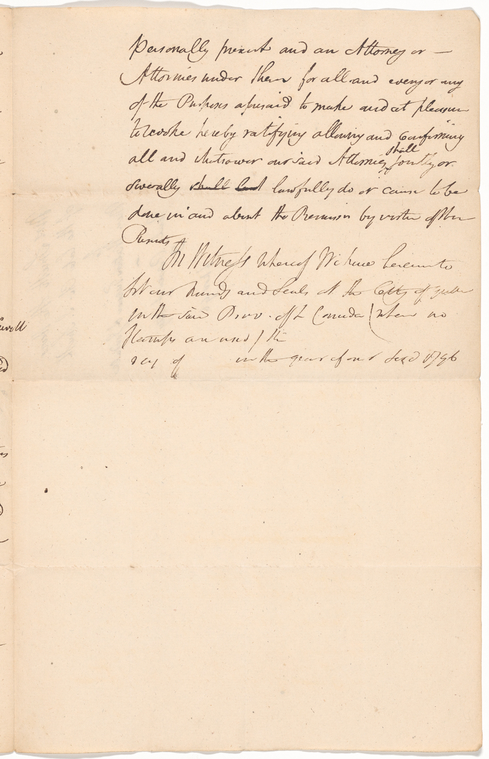 Personally present and an Attorney or —
Attornies under them for all and every or any
of the Purposes aforesaid to make and at pleasure
to revoke hereby ratifying allowing and Confirming
all and whatsoever our said Attornies Jointly or
shall
severally shall lawfully do or cause to be
done in and about the Premises by virtue of these
Presents
In Witness whereof We have hereunto
set our Hands and Seals at the City of
in the said Prov. of L Canada (where no
Stamps are used) the
day of in the year of our Lord 1796